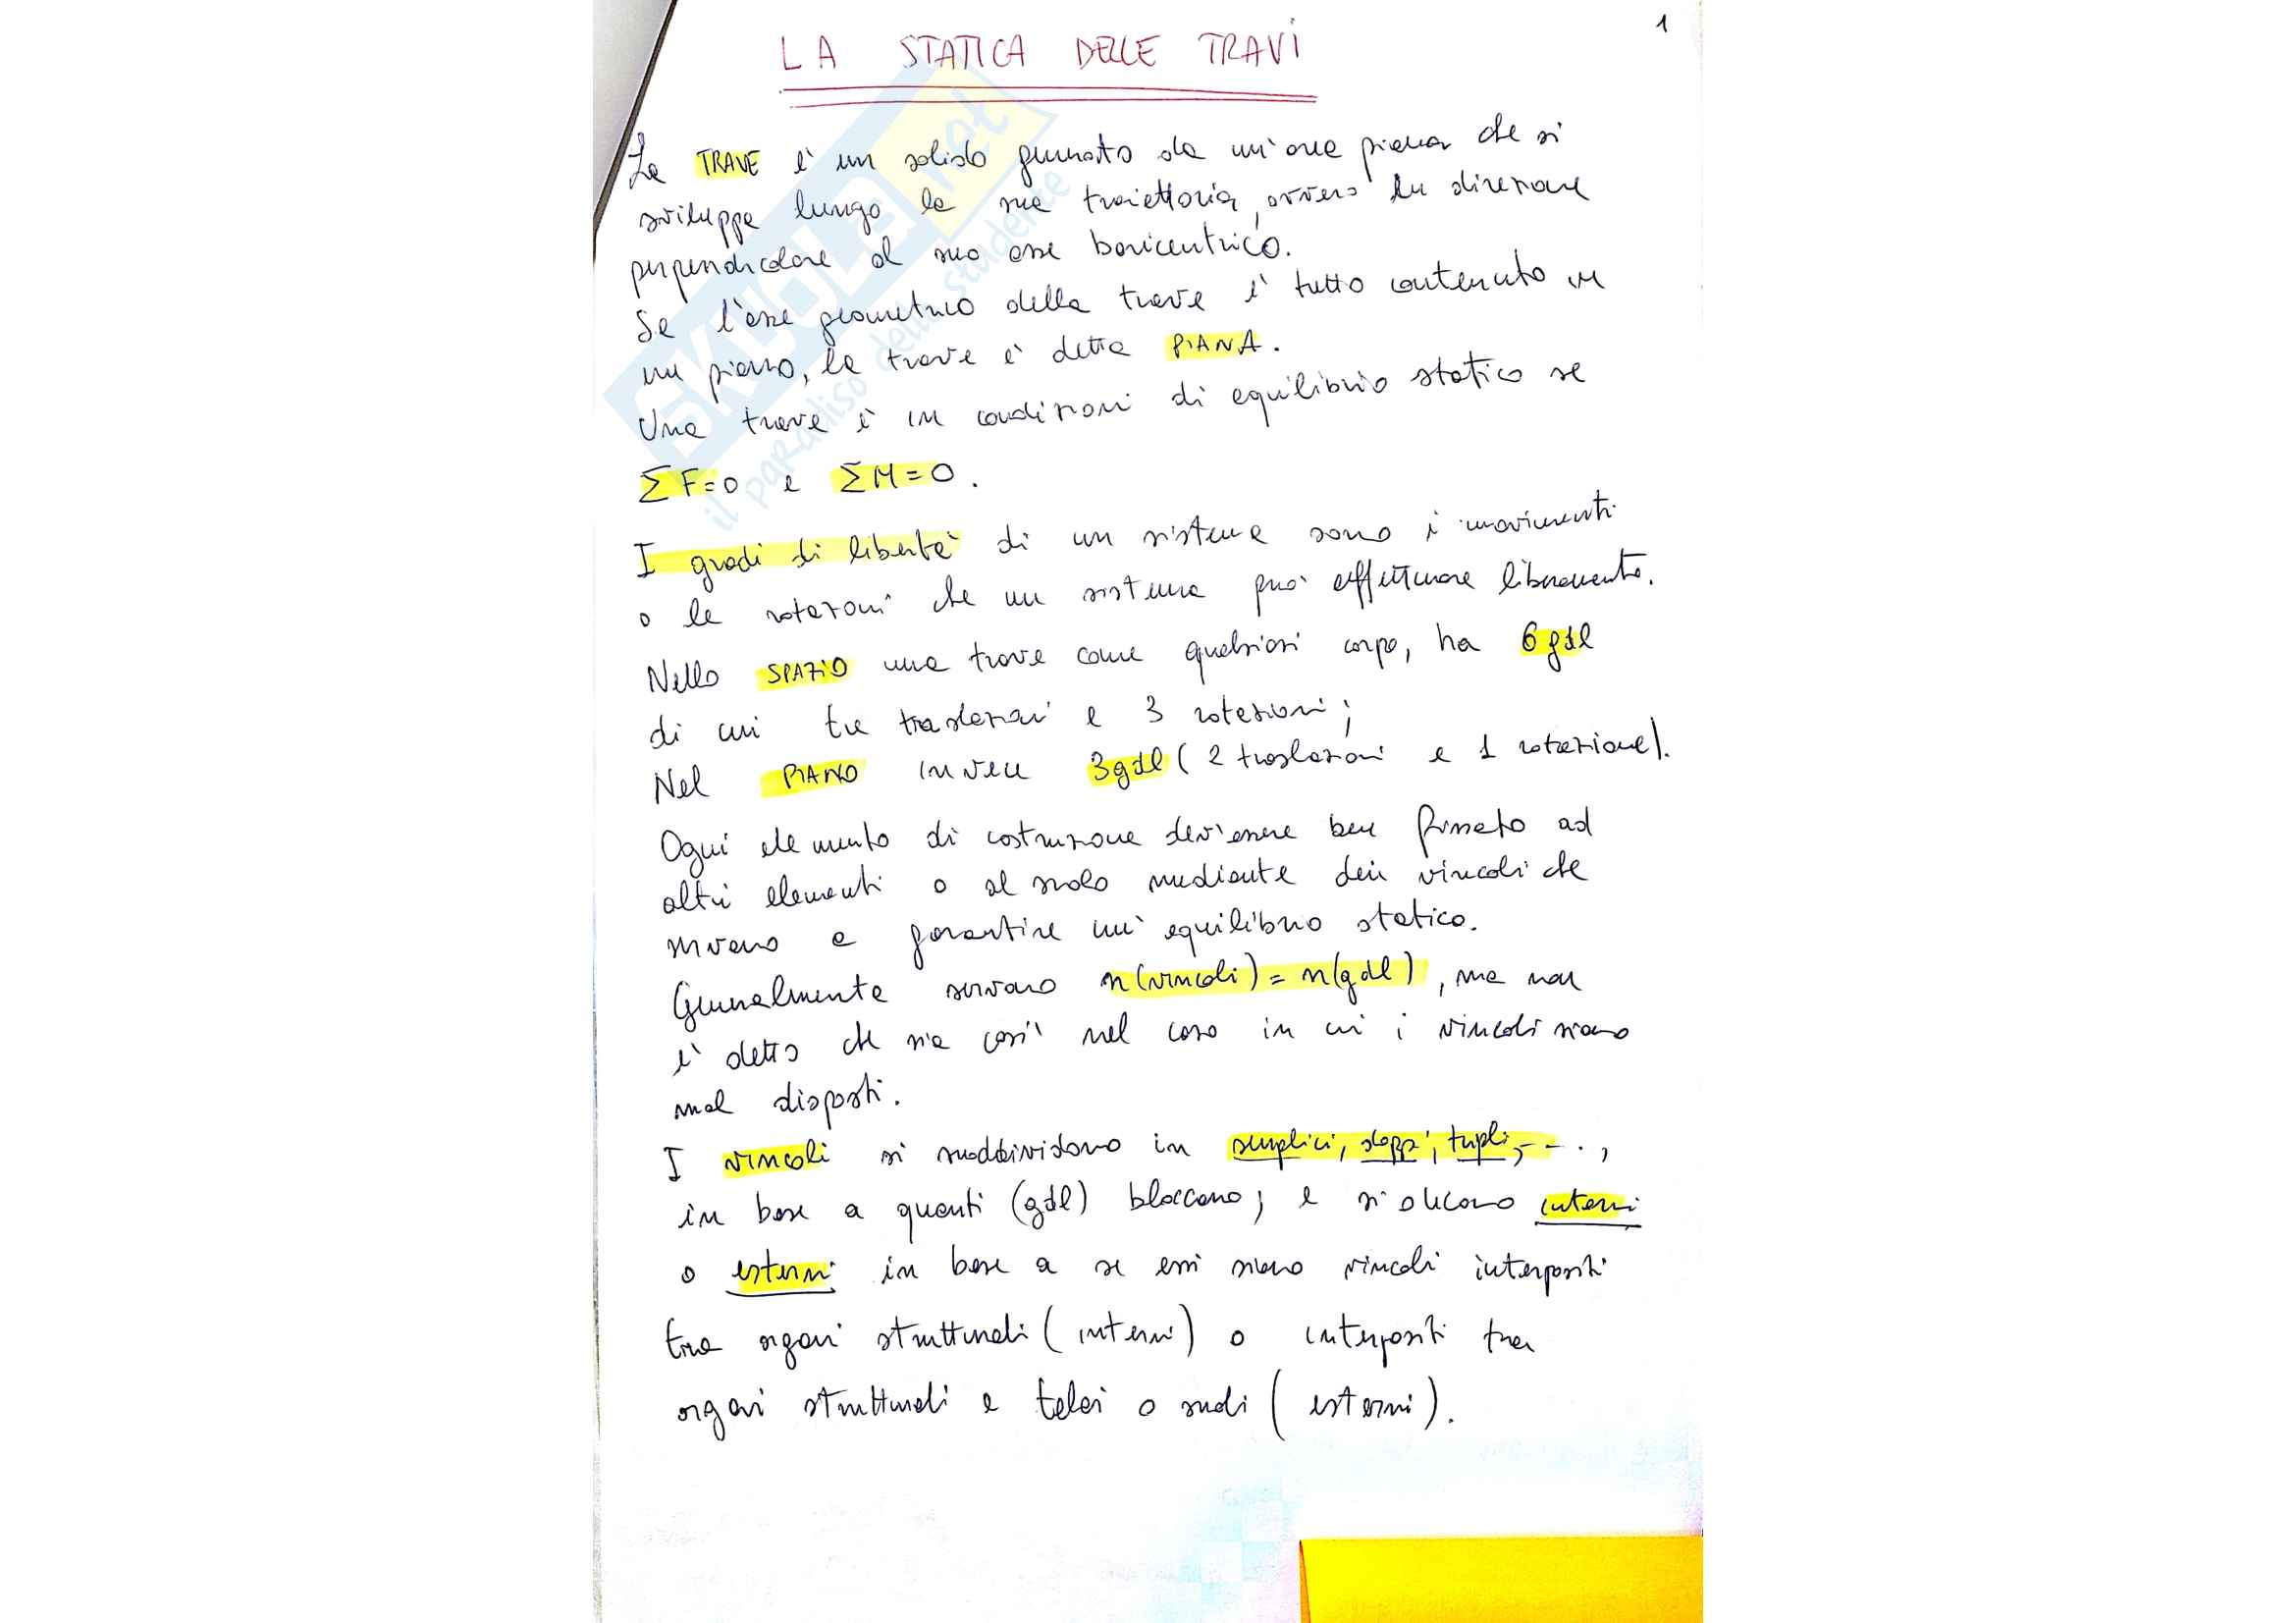 1
LA STATICA DELLE TRAVI
La TRAVE è un solido generato da un'area piana che si
sviluppa lungo la sua traiettoria, ovvero in direzione
perpendicolare al suo asse baricentrico.
Se l'asse geometrico della trave è tutto contenuto in
un piano, la trave è detta PIANA.
Una trave è in condizioni di equilibrio statico se
ΣF=0 e ΣM=0.
I gradi di libertà di un sistema sono i movimenti
o le rotazioni che un sistema può effettuare liberamente.
Nello SPAZIO una trave come qualsiasi corpo, ha 6 gdl
di cui tre traslazioni e 3 rotazioni;
Nel PIANO invece 3gdl (2 traslazioni e 1 rotazione).
Ogni elemento di costruzione dev'essere ben fissato ad
altri elementi o al suolo mediante dei vincoli che
servano a garantire un'equilibrio statico.
Generalmente servono n(vincoli) = n(gdl), ma non
è detto che sia così nel caso in cui i vincoli siano
mal disposti.
I vincoli si suddividono in semplici, doppi, tripli, --.,
in base a quanti (gdl) bloccano; e si dicono interni
o esterni in base a se essi siano vincoli interposti
tra organi strutturali (interni) o interposti tra
organi strutturali e telai o suoli (esterni).
SKUOLA.net
il paradiso dello studente